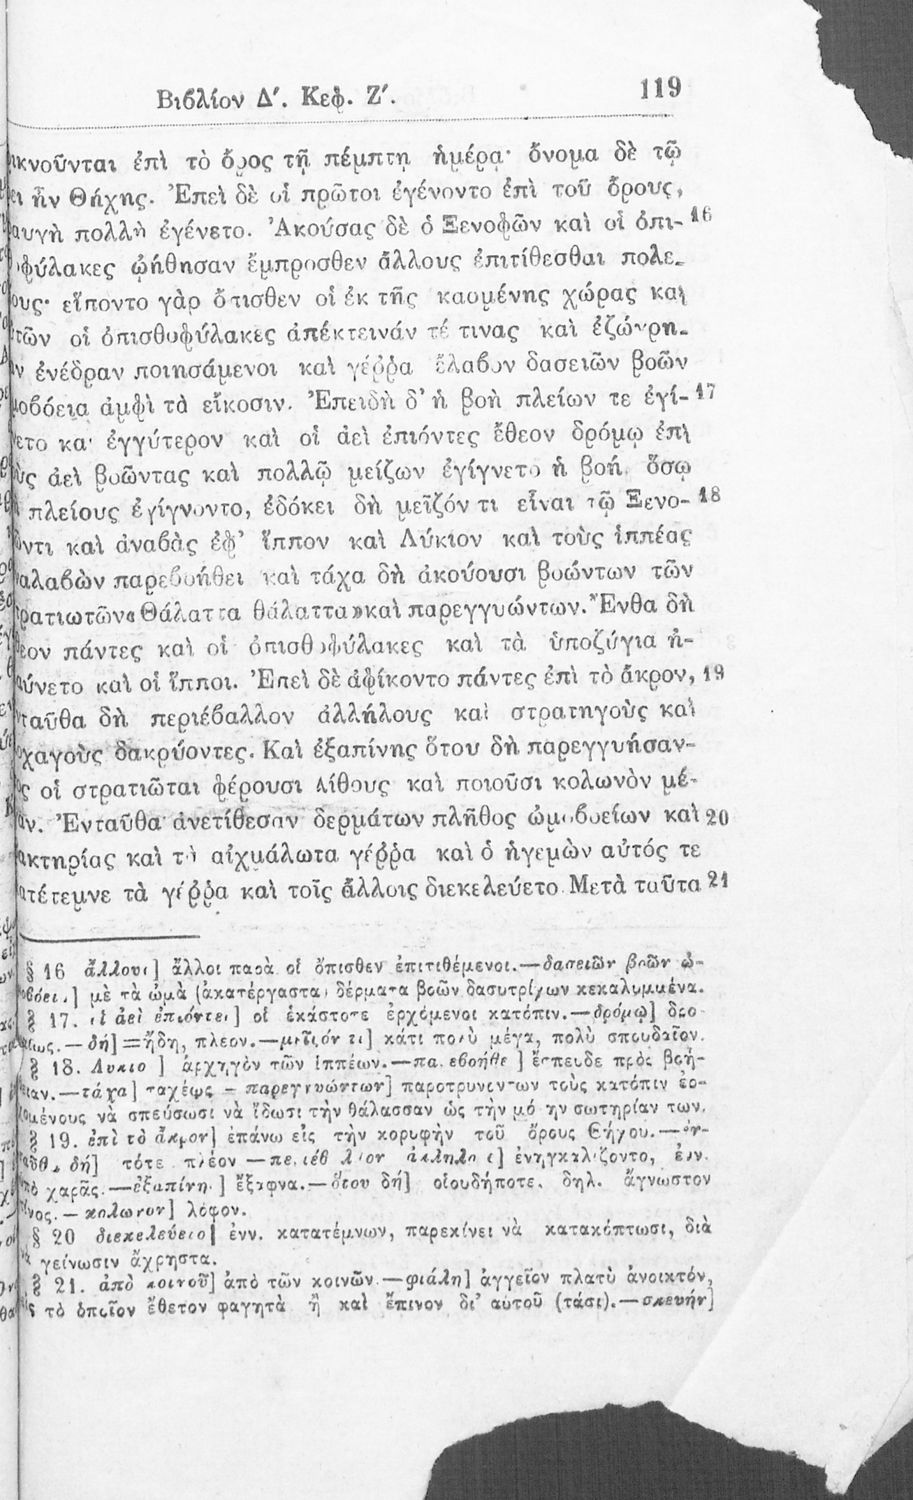 Βιβλίον Δ΄. Κεφ. Ζ΄. 119
κνοῦνται ἐπὶ τὸ ὄρος τῇ πέμπτῃ ἡμέρᾳ· ὄνομα δὲ τῷ
ει ἦν Θήχης. Ἐπεὶ δὲ οἱ πρῶτοι ἐγένοντο ἐπὶ τοῦ ὄρους,
αυγὴ πολλὴ ἐγένετο. Ἀκούσας δὲ ὁ Ξενοφῶν καὶ οἱ ὀπι- 16
φύλακες ᾠήθησαν ἔμπροσθεν ἄλλους ἐπιτίθεσθαι πολε-
ους· εἵποντο γὰρ ὄπισθεν οἱ ἐκ τῆς καομένης χώρας καὶ
τῶν οἱ ὀπισθοφύλακες ἀπέκτεινάν τέ τινας καὶ ἐζώγρη-
ν ἐνέδραν ποιησάμενοι καὶ γέρρα ἔλαβον δασειῶν βοῶν
μοβόεια ἀμφὶ τὰ εἴκοσιν. Ἐπειδὴ δ' ἡ βοὴ πλείων τε ἐγί- 17
ετο καὶ ἐγγύτερον καὶ οἱ ἀεὶ ἐπιόντες ἔθεον δρόμῳ ἐπὶ
ὺς ἀεὶ βοῶντας καὶ πολλῷ μείζων ἐγίγνετο ἡ βοή, ὅσῳ
πλείους ἐγίγνοντο, ἐδόκει δὴ μεῖζόν τι εἶναι τῷ Ξενο- 18
ῶντι καὶ ἀναβὰς ἐφ' ἵππον καὶ Λύκιον καὶ τοὺς ἱππέας
αλαβὼν παρεβοήθει καὶ τάχα δὴ ἀκούουσι βοώντων τῶν
ρατιωτῶν «Θάλαττα θάλαττα» καὶ παρεγγυώντων. Ἔνθα δὴ
εον πάντες καὶ οἱ ὀπισθοφύλακες καὶ τὰ ὑποζύγια ἠ-
αύνετο καὶ οἱ ἵπποι. Ἐπεὶ δὲ ἀφίκοντο πάντες ἐπὶ τὸ ἄκρον, 19
ταῦθα δὴ περιέβαλλον ἀλλήλους καὶ στρατηγοὺς καὶ
χαγοὺς δακρύοντες. Καὶ ἐξαπίνης ὅτου δὴ παρεγγυήσαν-
ς οἱ στρατιῶται φέρουσι λίθους καὶ ποιοῦσι κολωνὸν μέ-
αν. Ἐνταῦθα ἀνετίθεσαν δερμάτων πλῆθος ὠμοβοείων καὶ 20
ακτηρίας καὶ τὰ αἰχμάλωτα γέρρα καὶ ὁ ἡγεμὼν αὐτός τε
ατέτεμνε τὰ γέρρα καὶ τοῖς ἄλλοις διεκελεύετο. Μετὰ ταῦτα 21
§ 16 ἄλλους] ἄλλοι παρὰ οἱ ὄπισθεν ἐπιτιθέμενοι.—δασειῶν βοῶν ὠ-
βόει.] μὲ τὰ ὠμὰ (ἀκατέργαστα) δέρματα βοῶν δασυτρίχων κεκαλυμμένα.
§ 17. οἱ ἀεὶ ἐπιόντες] οἱ ἑκάστοτε ἐρχόμενοι κατόπιν.—δρόμῳ] δρο-
ίως.—δή]=ἤδη, πλέον.—μεῖζόν τι] κάτι πολὺ μέγα, πολὺ σπουδαῖον.
§ 18. Λύκιο ] ἀρχηγὸν τῶν ἱππέων.—πα. εβοήθε ] ἔσπευδε πρὸς βοή-
ιαν.—τάχα] ταχέως – παρεγγυώντων] παροτρυνόντων τοὺς κατόπιν ἐρ-
ομένους νὰ σπεύσωσι νὰ ἴδωσι τὴν θάλασσαν ὡς τὴν μόνην σωτηρίαν των.
§ 19. ἐπὶ τὸ ἄκρον] ἐπάνω εἰς τὴν κορυφὴν τοῦ ὄρους Θήχου.—ἐν-
αῦθα δή] τότε πλέον —περιέβαλλον ἀλλήλους] ἐνηγκαλίζοντο, ἐνν.
πὸ χαρᾶς.—ἐξαπίνη.] ἔξαφνα.—ὅτου δή] οἱουδήποτε. δηλ. ἄγνωστον
ίνος.—κολωνον] λόφον.
§ 20 διεκελεύετο] ἐνν. κατατέμνων, παρεκίνει νὰ κατακόπτωσι, διὰ
γείνωσιν ἄχρηστα.
§ 21. ἀπὸ κοινοῦ] ἀπὸ τῶν κοινῶν.—φιάλη] ἀγγεῖον πλατὺ ἀνοικτόν,
ς τὸ ὁποῖον ἔθετον φαγητὰ ἢ καὶ ἔπινον δι' αὐτοῦ (τάσι).—σκευήν]